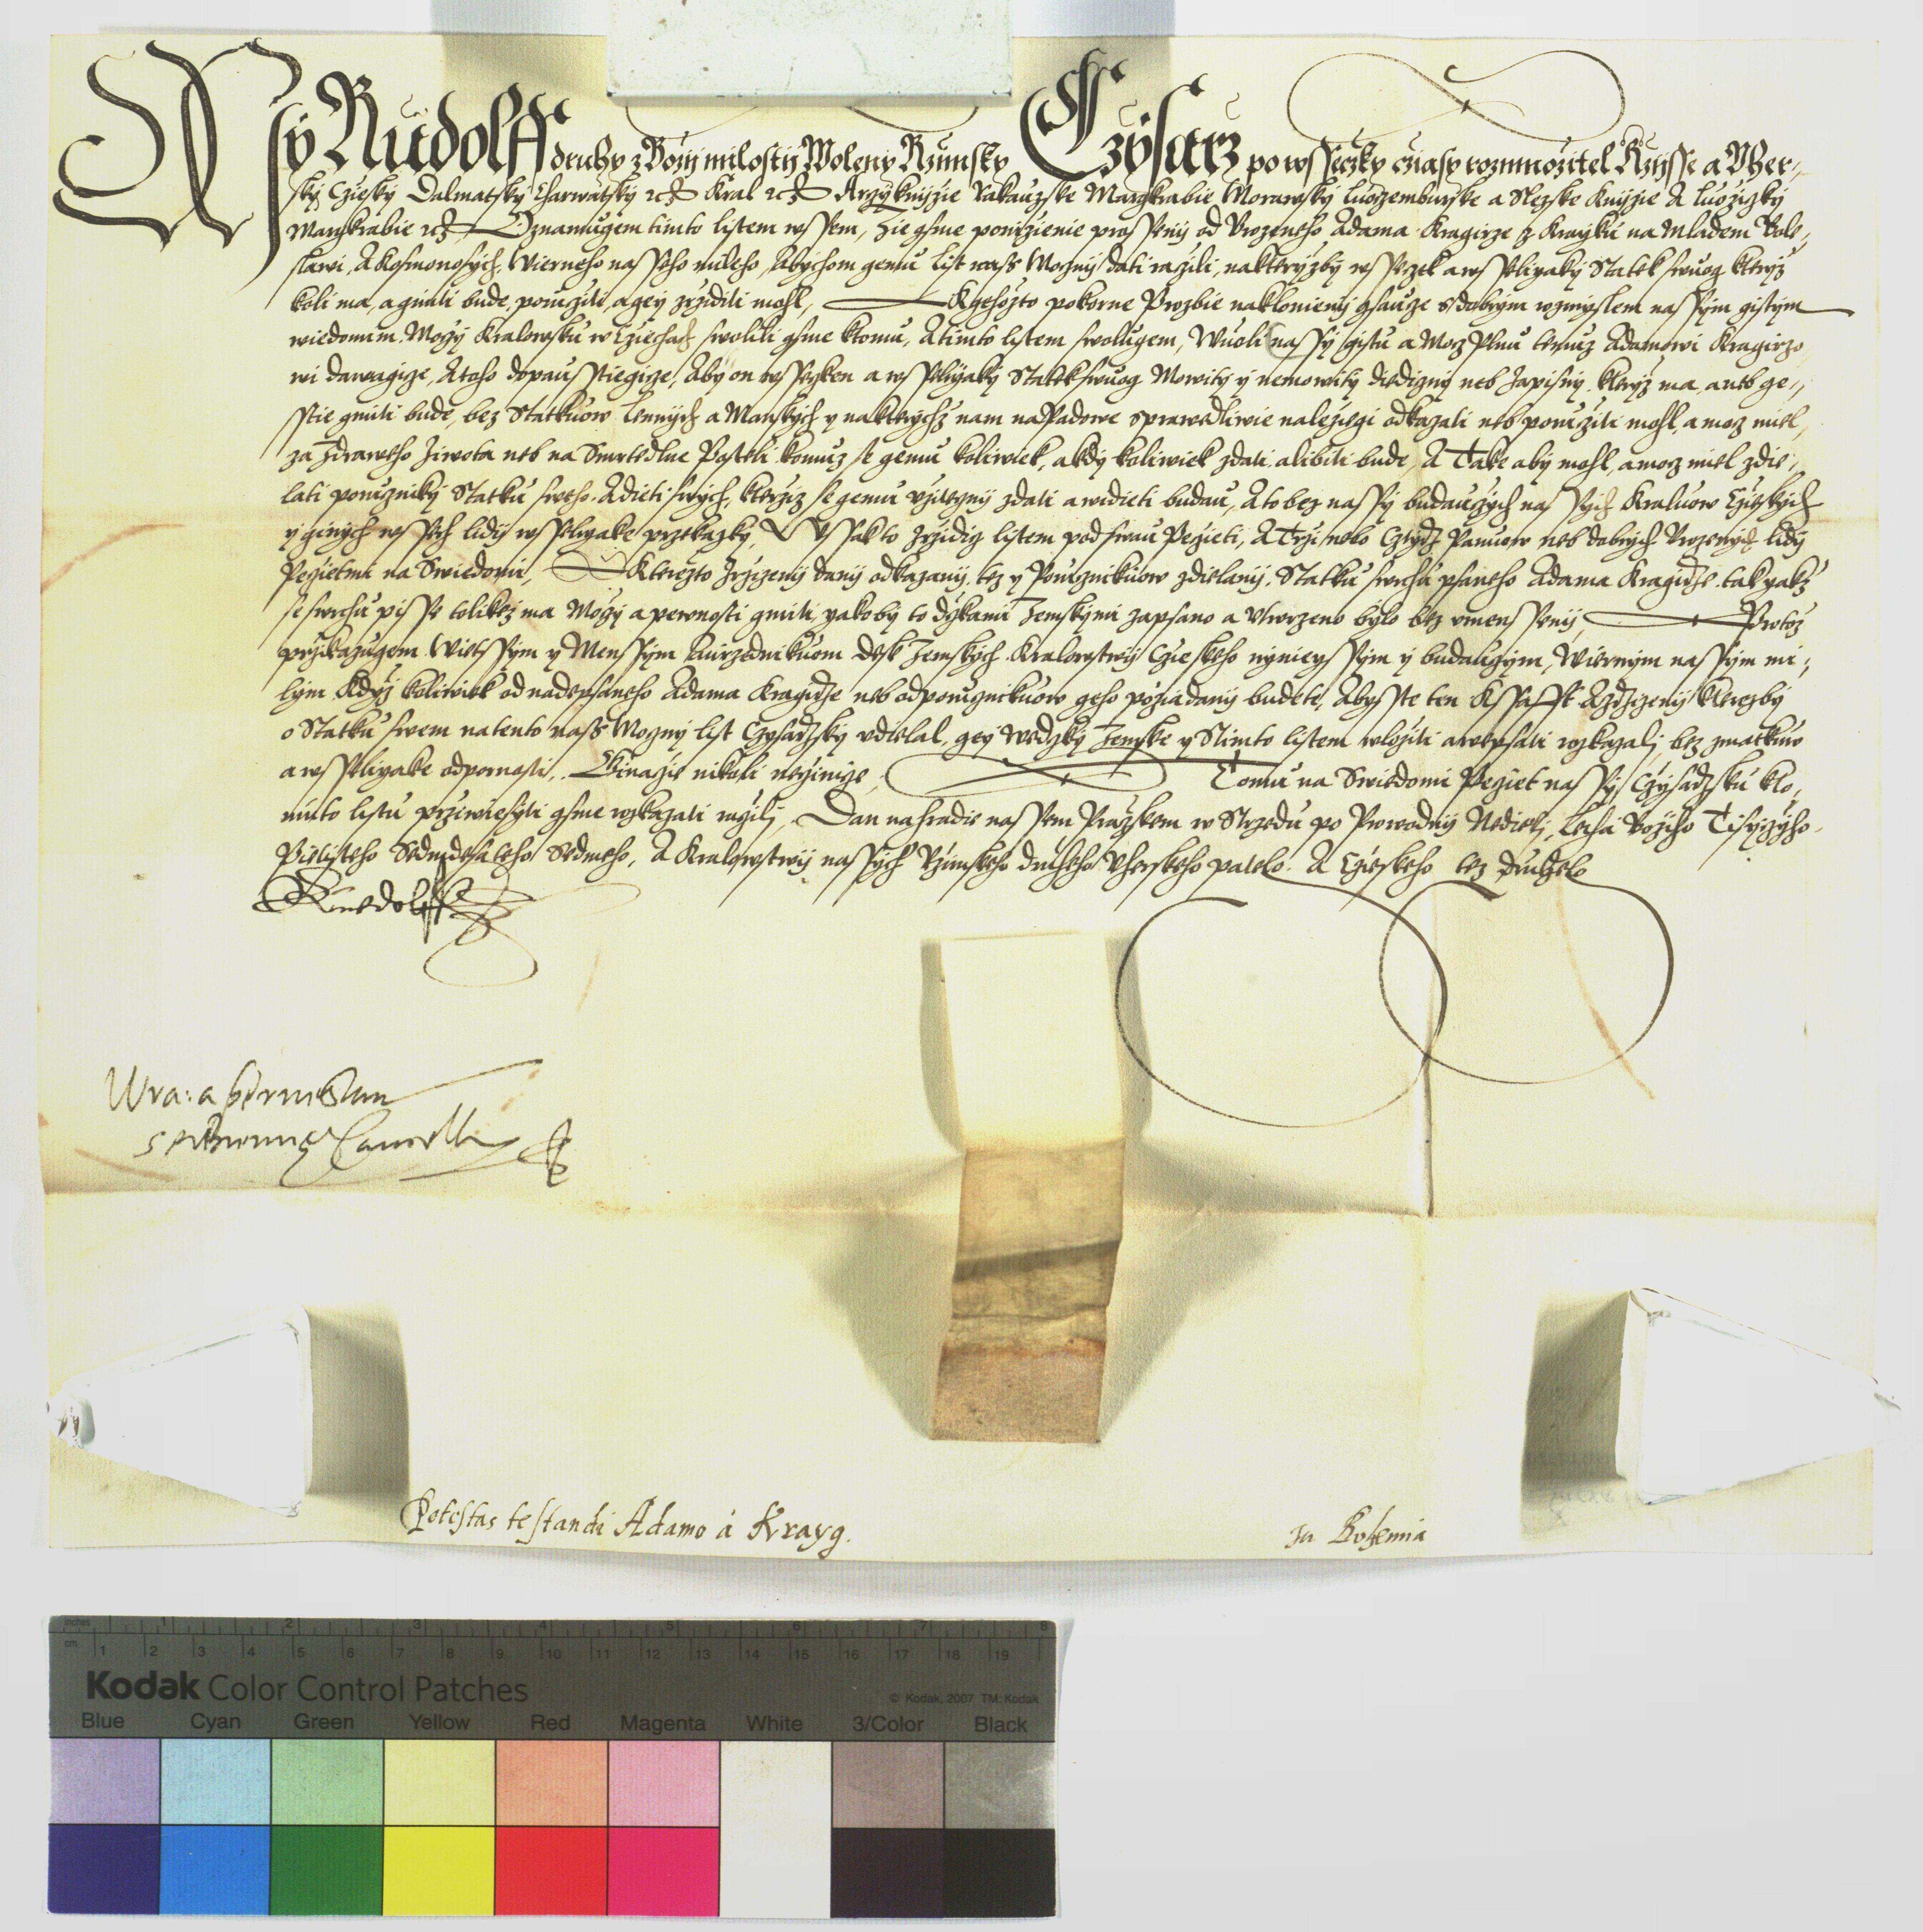 My Rudolff druhy z Bozij milostij Woleny Rzimsky Czysarz po wsseczky cziasy rozmnozitel Rzisse a Vher-
sky Cziesky Dalmatsky Charwatsky ꝛcꝫ Kral ꝛcꝫ Arzyknijzie Rakauzske Margkrabie Morawsky Luczemburske a Slezske Knijzie A Luozizky
Margkrabie ꝛcꝫ Oznamugem timto listem wssem, Zie gsme ponizienie prosseny od Vrozeneho Adama Kragirze z Krayku na Mladem Bole-
slawi, A Kosmonosych, Wierneho nasseho mileho, Abychom gemu List nass Moczny dati raczili, na kteryzby wsseczek a wsseligaky Statek swuog kteryz
koli ma, a gmiti bude, poruczili, a gey zrziditi mohl, K gehozto pokorne Prozbie naklonieny gsauze s dobrym rozmyslem nassym gistym
wiedomim Moczy Kralowsku w Cziechach swolili gsme k tomu, A timto listem swolugem, Wuoli nassy gistu a Mocz Plnu temuz Adamowi Kragirzo-
wi dawagicze, A toho dopausstiegicze, Aby on wsseczken a wsseligaky Statek swuog Mowity y nemowity diediczny neb Zapisny, kteryz ma, aneb ge-
sstie gmiti bude, bez Statkuow lennych a Manskych y na kterychz nam napadowe sprawedliwie nalezegi odkazati neb poruczili mohl, a mocz miel,
za Zdraweho Ziwota neb na Smrtedlne Posteli komuz se gemu koliwiek, a kdy koliwiek zdati, a libiti bude, A Take aby mohl, a mocz miel zdie-
lati poruczniky Statku sweho. A dieti swych, kteryz se gemu vziteczny zdati a widieti budau, A to bez nassy budauczych nassych Kraluow Czieskych
y ginych wssech lidij wsselijake przekazky, Wssak to Zrzidiz listem pod swau Peczieti, A Trzi nebo Cztyrz Panuow neb dobrych Vrozenych lidij
Pecziettmi na Swiedomi, Kterezto Zrzizenij dani odkazanij, tez y Porucznikuow zdielanij, Statku swrchu psaneho Adama Kragirze, tak yakz
se swrchu pisse tolikez ma Moczy a pewnosti gmiti, yakoby to dskami Zemskymi zapsano a Vtwrzeno bylo bez vmenssenij, Protoz
przikazugem Wietssym y Menssym Aurzednikuom desk Zemskych Kralowstwij Czieskeho nynieyssym y budauczym, Wiernym nassym mi-
lym Kdyz koliwiek od nadepsaneho Adama Kragirze neb od porucznikuow geho poziadany budete, Abysste ten Kssafft A Zrzizenij kterezby
o Statku swem na tento nass Moczny list Czysarzsky vdielal, gey we dsky Zemske y s timto listem wloziti a wepsati rozkazali, bez zmatkuw
a wsselijake odpornosti, Ginacze nikoli necziniecze, Tomu na Swiedomi Pecziet nassy Czysarzsku k to-
muto listu przwiesyti gsme rozkazati raczili, Dan na hradie nassem Prazskem w Strzedu po Prowodny Nedieli, Letha Bozijho Tisyczyho
Pietisteho Sedmdesateho Sedmeho, A Kralowstwij nassych Rzimskeho druheho Vherskeho pateho. A Czieskeho tez druheho
Ruedolff
Wra: a bernsstein
s: R: bohemie Cancell:
Potestas testandi Adamo à Krayg.
In Bohemia
inches 1 2 3 4 5 6 7 8
cm 1 2 3 4 5 6 7 8 9 10 11 12 13 14 15 16 17 18 19
Kodak Color Control Patches
© Kodak, 2007 TM: Kodak
Blue Cyan Green Yellow Red Magenta White 3/Color Black